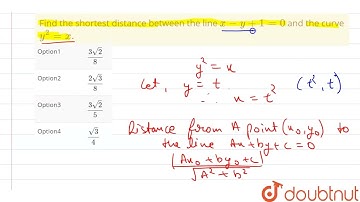 Find the shortest distance between the line x − y + 1 = 0 and the curve
y² = x.
Option1 3√2/8
Option2 2√3/8
Option3 3√2/5
Option4 √3/4
y² = x
Let, y = t.
∴ x = t²
(t², t)
Distance from A point (x₀, y₀) to
the line Ax + by + c = 0
|Ax₀ + by₀ + c|
√A² + b²
doubtnut